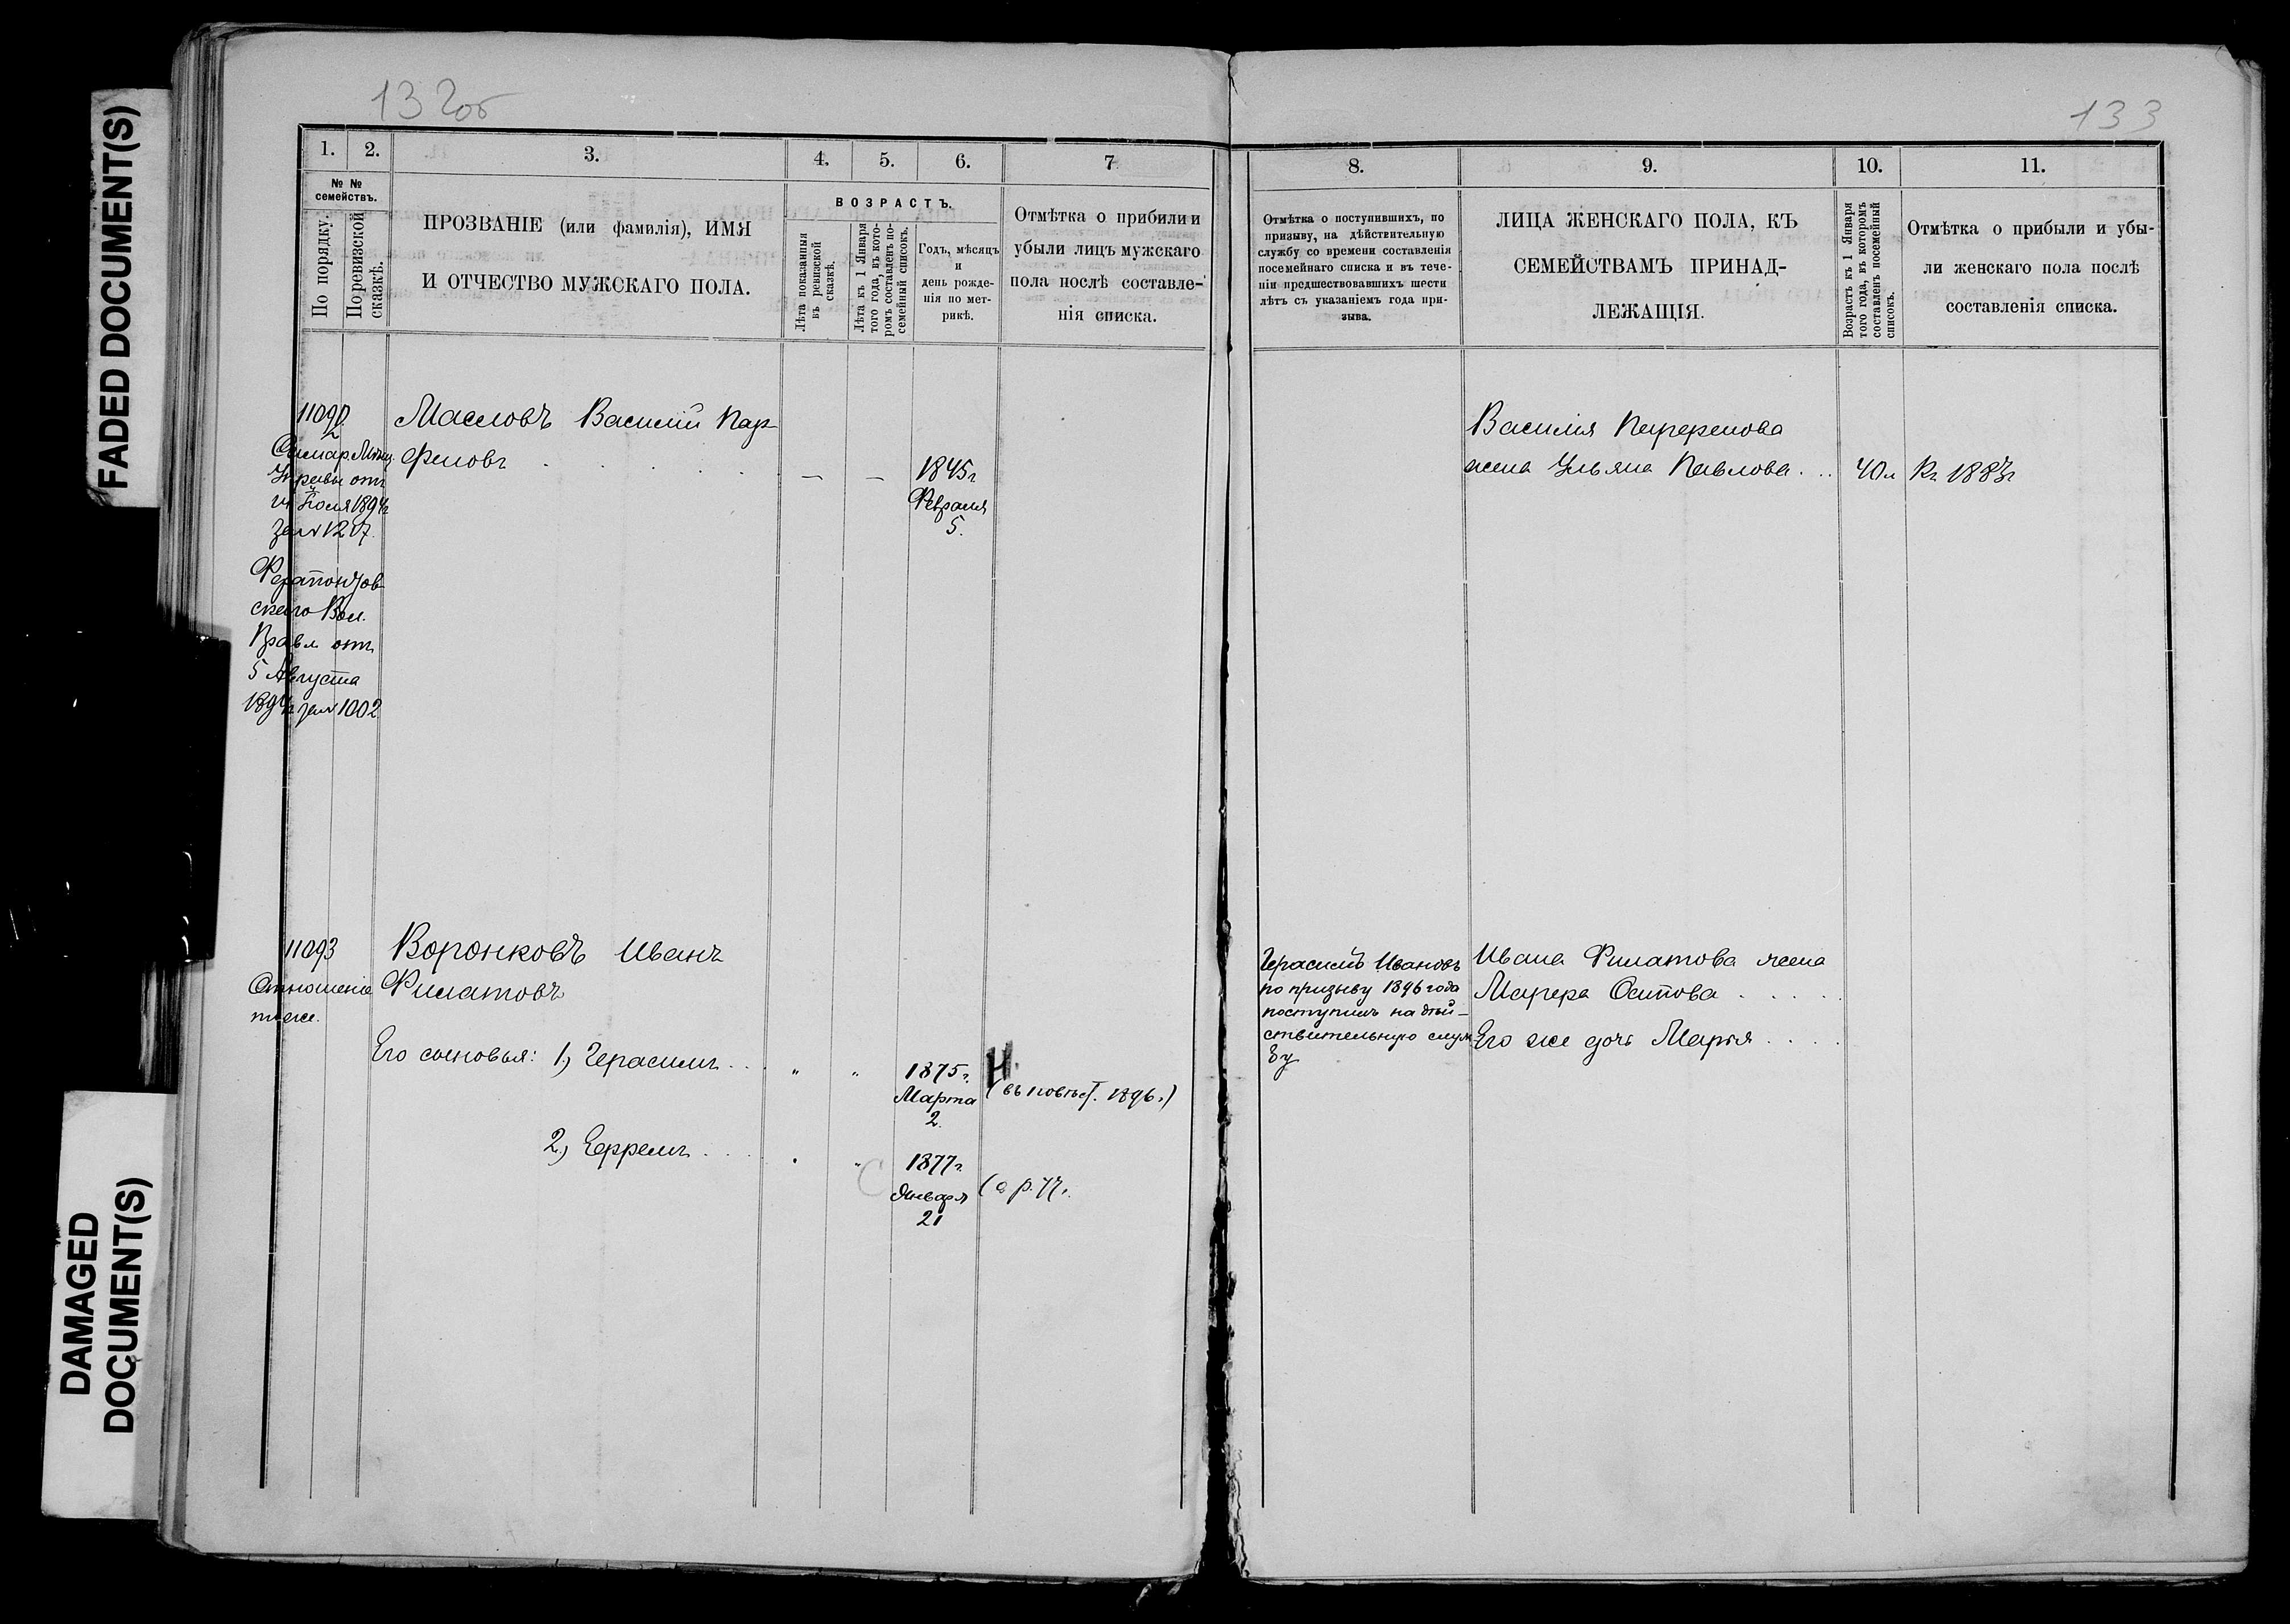 FADED DOCUMENT(S)
DAMAGED
DOCUMENT(S)
132об
133
1.
2.
3.
4.
5.
6.
7
№ №
семействъ.
По порядку.
По ревизской
сказкѣ.
ПРОЗВАНІЕ (или фамилія), ИМЯ
И ОТЧЕСТВО МУЖСКАГО ПОЛА.
ВОЗРАСТЪ.
Лѣта показанныя
въ ревизской
сказкѣ.
Лѣта къ 1 Января
того года, въ кото-
ромъ составленъ по-
семейный списокъ.
Годъ, мѣсяцъ
и
день рожде-
нія по мет-
рикѣ.
Отмѣтка о прибыли и
убыли лицъ мужскаго
пола послѣ составле-
нія списка.
11092
Самар. Мѣщ.
Управы отъ
Іюля 1894г
за № 1207.
Ферапонтов-
скаго Вол.
Правл отъ
5 Августа
1894г за № 1002
Масловъ Василій Пар-
феновъ
—
—
1845г
Февраля
5.
11093
Отношеніе
тоже.
Воронковъ Иванъ
Филатовъ
Его сыновья: 1) Герасимъ
"
"
1875г.
Марта
2.
Н
2) Ефремъ
1877г.
Января
21
8.
9.
10.
11.
Отмѣтка о поступившихъ, по
призыву, на дѣйствительную
службу со времени составленія
посемейнаго списка и въ тече-
ніи предшествовавшихъ шести
лѣтъ съ указаніемъ года при-
зыва.
ЛИЦА ЖЕНСКАГО ПОЛА, КЪ
СЕМЕЙСТВАМЪ ПРИНАД-
ЛЕЖАЩІЯ.
Возрастъ къ 1 Января
того года, въ которомъ
составленъ посемейный
списокъ.
Отмѣтка о прибыли и убы-
ли женскаго пола послѣ
составленія списка.
Василія Парфенова
жена Ульяна Павлова
40л
Къ 1887г
Герасимъ Ивановъ
по призыву 1896 года
поступилъ на дѣй-
ствительную служ
бу
Ивана Филатова жена
Марфа Осипова
Его же дочь Марья